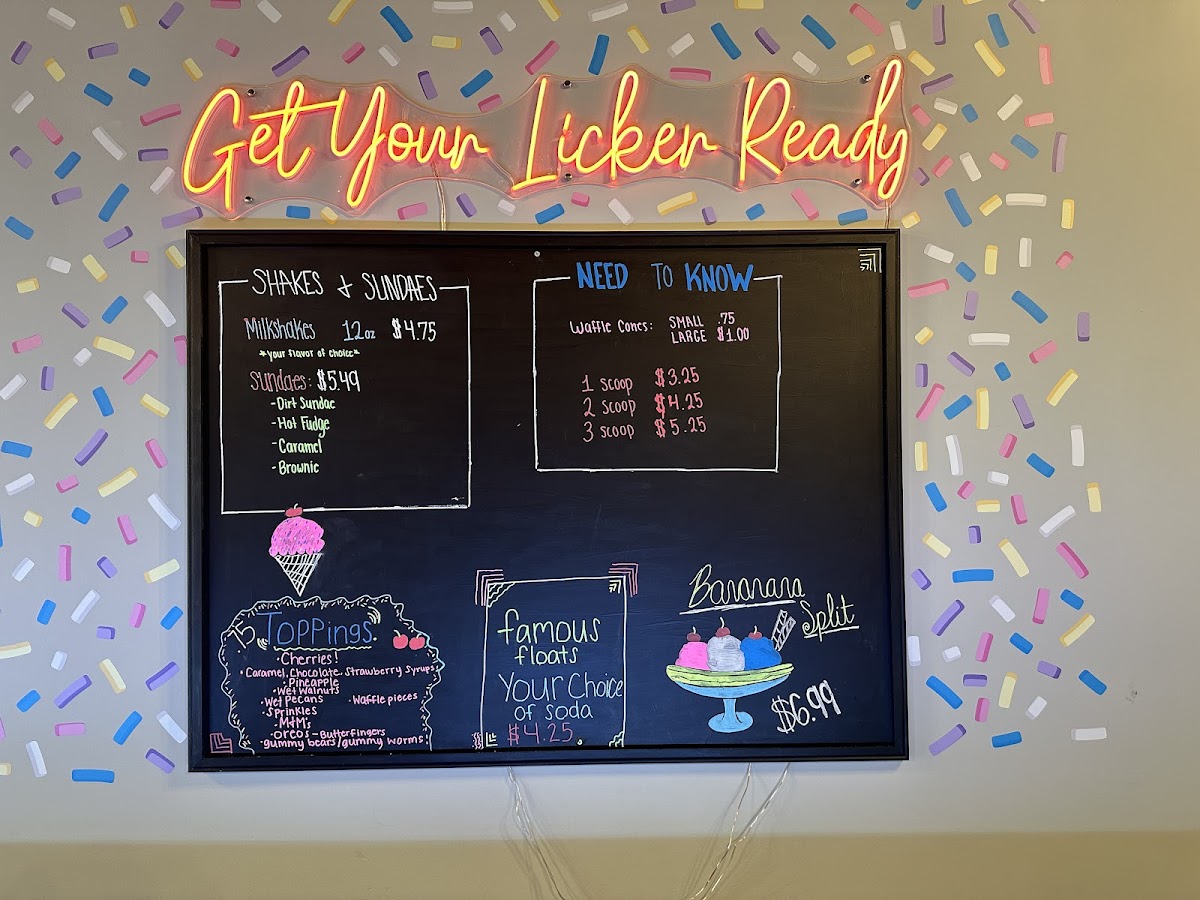 Get Your Licker Ready
SHAKES & SUNDAES
Milkshakes 12oz $4.75
*your flavor of choice*
Sundaes: $5.49
-Dirt Sundae
-Hot Fudge
-Caramel
-Brownie
NEED TO KNOW
Waffle Cones: SMALL .75
LARGE $1.00
1 SCOOP $3.25
2 SCOOP $4.25
3 SCOOP $5.25
.75 TOPPings
·Cherries!
·Caramel, Chocolate, Strawberry Syrups
·Pineapple
·Wet Walnuts
·Wet Pecans ·Waffle pieces
·Sprinkles
·M&M's
·oreos -Butterfingers
·gummy bears/gummy worms!
famous
floats
Your Choice
of soda
$4.25
Bananana
Split
$6.99